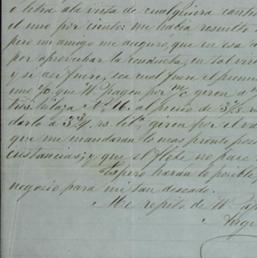 o letra a la vista de cualquiera
el uno por ciento me había resuelto
pero mi amigo me aseguró que en esa
por aprovechar la conducta, en tal vir
y si así fuere, sea cual fuere el premi
uno % que W. hagan por m/c. giren a
tres hilaza Nº 16. al precio de 3⅝ rs
darlo a 3¾ rs lb. giren por el va
que me mandaran lo mas pronto pos
cunstancias; y que el flete no pase
Espero harán lo posible
negocio para mi tan deseado.
Me repito de W.
Ange